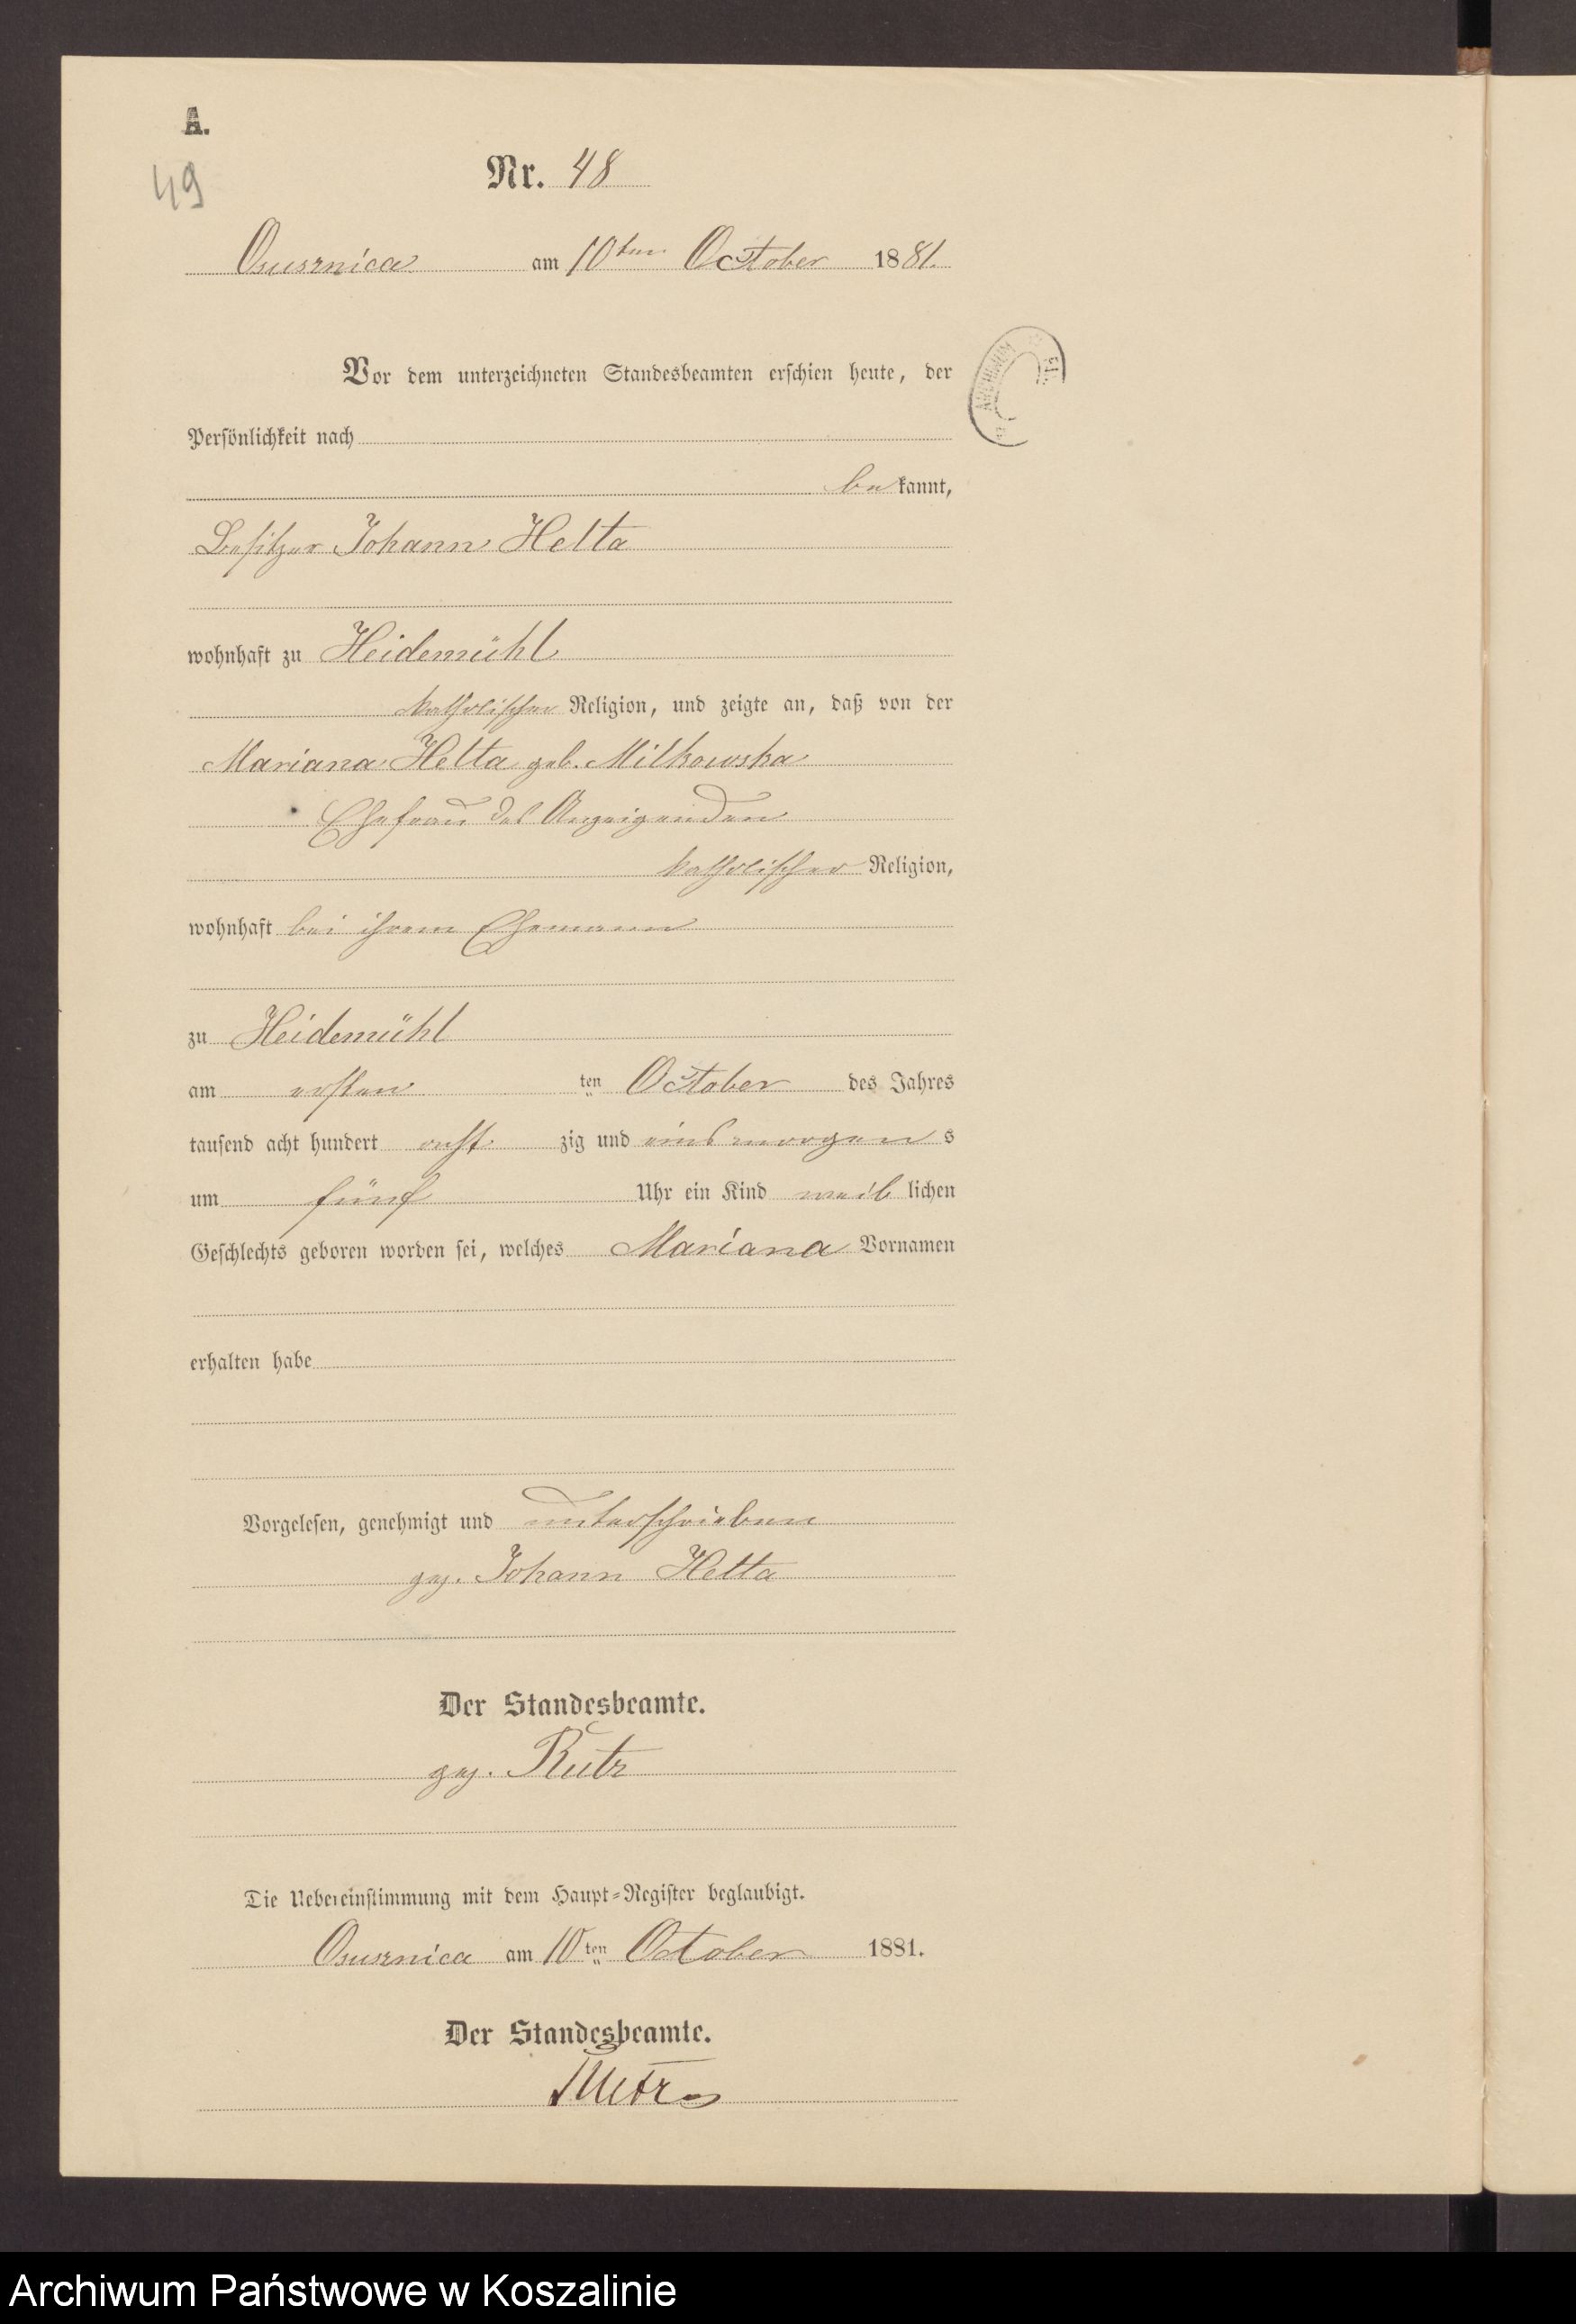 A.
49
Nr. 48
Osusznica am 10ten October 1881.
Vor dem unterzeichneten Standesbeamten erschien heute, der
Persönlichkeit nach
bekannt,
Besitzer Johann Helta
wohnhaft zu Heidemühl
katholischer Religion, und zeigte an, daß von der
Mariana Helta geb. Milkowska
Ehefrau des Anzeigenden
katholischer Religion,
wohnhaft bei ihrem Ehemann
zu Heidemühl
am ersten ten October des Jahres
tausend acht hundert acht zig und eins morgens
um fünf Uhr ein Kind weiblichen
Geschlechts geboren worden sei, welches Mariana Vornamen
erhalten habe
Vorgelesen, genehmigt und unterschrieben
gez. Johann Helta
Der Standesbeamte.
gez. Rutz
Die Uebereinstimmung mit dem Haupt-Register beglaubigt.
Osusznica am 10ten October 1881.
Der Standesbeamte.
Rutz
ARCHIWUM
Archiwum Państwowe w Koszalinie